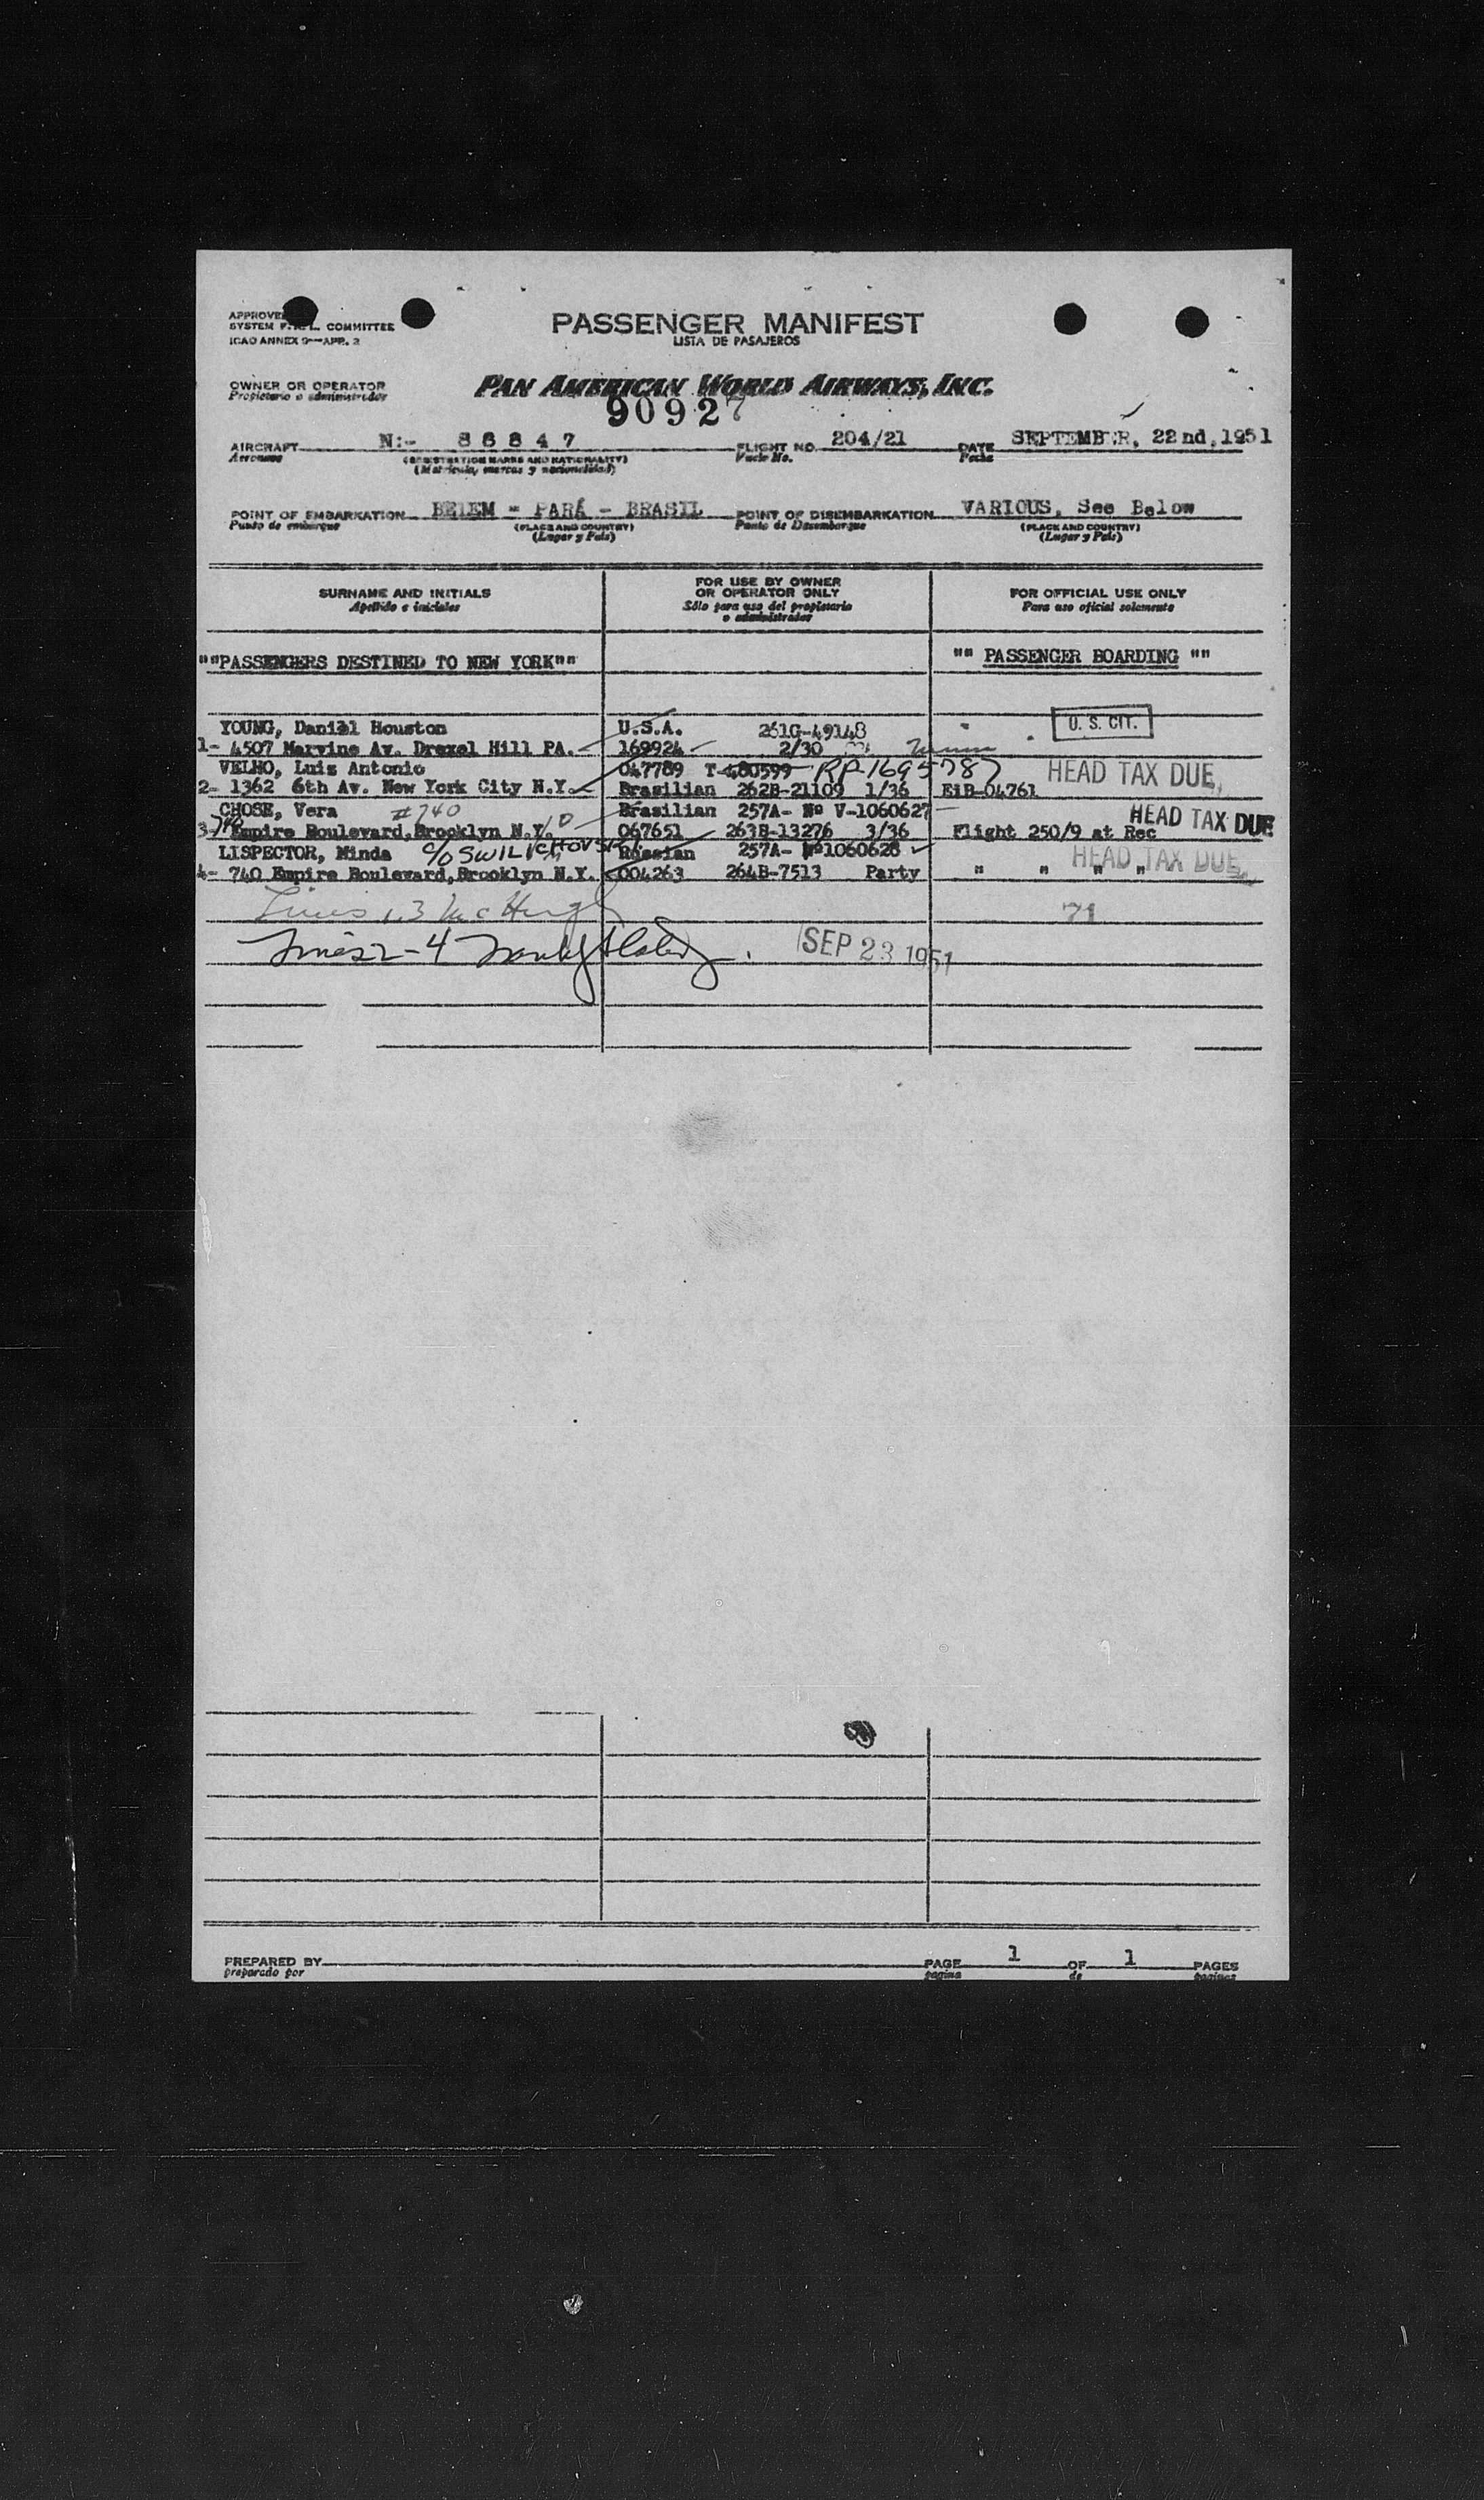 PASSENGER MANIFEST
LISTA DE PASAJEROS
SYSTEM COMMITTEE
ICAO ANNEX 9—APP. 2
OWNER OR OPERATOR
Propietario o administrador
PAN AMERICAN WORLD AIRWAYS, INC.
90927
AIRCRAFT N:- 88847 FLIGHT NO. 204/21 DATE SEPTEMBER, 22nd, 1951
Aeronave (REGISTRATION MARKS AND NATIONALITY) Vuelo No. Fecha
(Matrícula, marcas y nacionalidad)
POINT OF EMBARKATION BELEM - PARÁ - BRASIL POINT OF DISEMBARKATION VARIOUS, See Below
Punto de embarque (PLACE AND COUNTRY) Punto de Desembarque (PLACE AND COUNTRY)
(Lugar y País) (Lugar y País)
SURNAME AND INITIALS FOR USE BY OWNER OR OPERATOR ONLY FOR OFFICIAL USE ONLY
Apellido e iniciales Sólo para uso del propietario o administrador Para uso oficial solamente
""PASSENGERS DESTINED TO NEW YORK"" "" PASSENGER BOARDING ""
YOUNG, Daniel Houston U.S.A. 261G-49148 U. S. CIT.
1- 4507 Marvine Av. Drexel Hill PA. 169924 2/30
VELHO, Luis Antonio 047789 T-480599 RP-1695787 HEAD TAX DUE,
2- 1362 6th Av. New York City N.Y. Brasilian 262B-21109 1/36 EiB-04761
CHOSE, Vera #740 Brasilian 257A- Nº V-1060627 HEAD TAX DUE
3- 740 Empire Boulevard, Brooklyn N.Y. 067651 263B-13276 3/36 Flight 250/9 at Rec
LISPECTOR, Minda c/o Russian 257A- Nº1060628 HEAD TAX DUE,
4- 740 Empire Boulevard, Brooklyn N.Y. 004263 264B-7513 Party " " " "
Lines 1,3 McHugh 71
Lines 2-4 SEP 23 1951
PREPARED BY PAGE 1 OF 1 PAGES
preparado por página de páginas